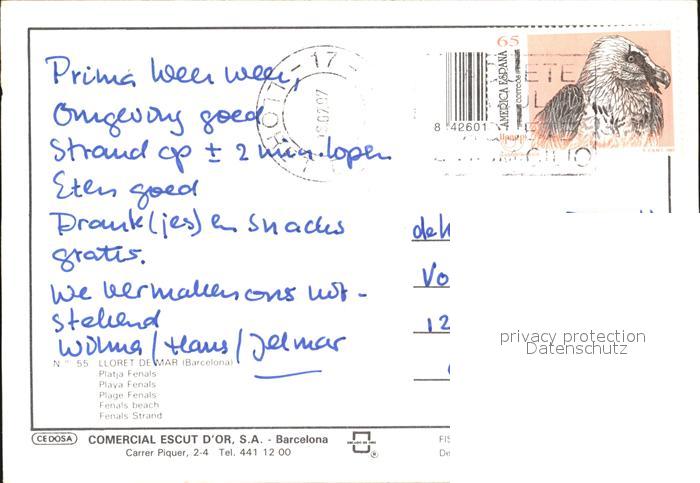 Prima weer weer,
Omgeving goed
Strand op ± 2 min. lopen
Eten goed
Drank(jes) en snacks
gratis.
We vermaken ons uit-
stekend
Wilma / Hans / Jelmar
Nº 55 LLORET DE MAR (Barcelona)
Platja Fenals
Playa Fenals
Plage Fenals
Fenals beach
Fenals Strand
CEDOSA COMERCIAL ESCUT D'OR, S.A. - Barcelona
Carrer Piquer, 2-4 Tel. 441 12 00
17
65
AMERICA ESPAÑA
CORREOS
8 42601
Vo
12
privacy protection
Datenschutz
FIS
De